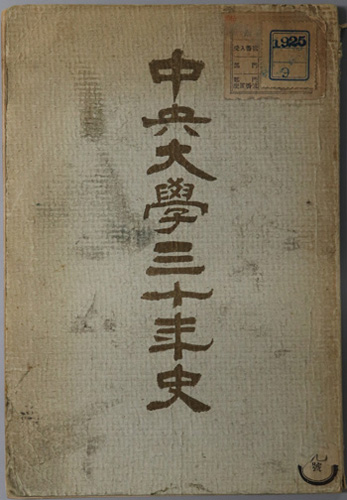 中央大學三十年史
1925
9
號